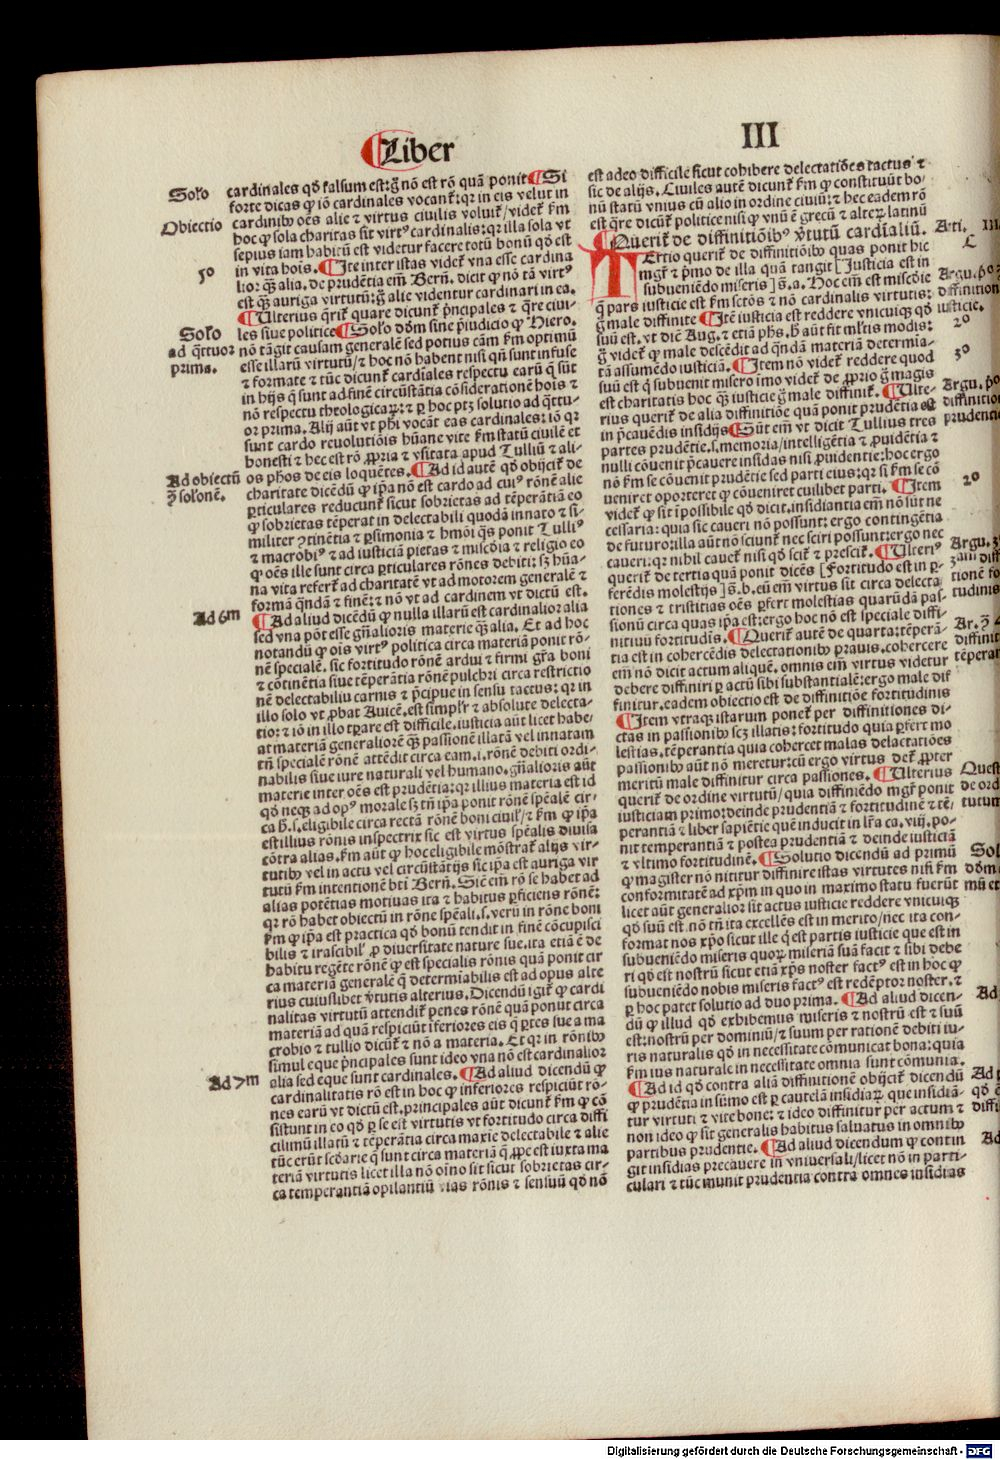 Liber III
Solo
cardinales qđ falsum est: g̃ nō est rō quā ponit ¶ Si
forte dicas ꝙ iō cardinales vocanť: qr in eis velut in
Obiectio
cardinibꝰ oēs alie ⁊ virtus civilis voluiť/videť ẜm
hoc ꝙ sola charitas sit virtꝰ cardinalis: qr illa sola vt
sepius iam habitū est videtur facere totū bonū qđ est
5º
in vita hois. ¶ Ite inter istas videť vna esse cardina
lior q̄ʒ alia. de prudētia em̄ Bern̄. dicit ꝙ nō tā virtꝰ
est q̄ʒ auriga virtutū: g̃ alie videntur cardinari in ea.
¶ Ulterius q̄riť quare dicunť p̄ncipales ⁊ q̄re ciui-
Solo
les siue politice ¶ Solo dōm sine p̄iudicio ꝙ Hiero.
ad q̄ttuor
nō tāgit causam generalē sed potius cām ẜm optimū
prima.
esse illarū virtutū/⁊ hoc nō habent nisi qn̄ sunt infuse
⁊ formate ⁊ tūc dicunť cardīales respectu earū q̄ sūt
in hijs q̄ sunt ad finē circūstātia cōsideratione hois ⁊
nō respectu theologicaꝝ: ⁊ ꝑ hoc ptʒ solutio ad q̄ttu-
or prima. Alij aūt vt phi vocāt eas cardinales: iō qr
sunt cardo reuolutiōis hūane vite ẜm statū ciuilē et
honesti ⁊ hec est rō ꝓpria ⁊ vsitata apud Tulliū ⁊ ali-
Ad obiectū
os phos de eis loquētes. ¶ Ad id autē qđ obijciť de
ꝫ solonē.
charitate dicēdū ꝙ ip̄a nō est cardo ad cuiꝰ rōnē alie
ꝑticulares reducunť sicut sobrietas ad tēperātiā eo
ꝙ sobrietas tēperat in delectabili quodā innato ⁊ si-
militer ɔtinētia ⁊ ꝑsimonia ⁊ hmōi q̄s ponit Tulliꝰ
⁊ macrobiꝰ ⁊ ad iusticiā pietas ⁊ miscdia ⁊ religio eo
ꝙ oēs ille sunt circa ꝑticulares rōnes debiti: sʒ hūa-
na vita referť ad charitatē vt ad motorem generalē ⁊
formā q̄ndā ⁊ finē: ⁊ nō vt ad cardinem vt dictū est.
Ad 6m
¶ Ad aliud dicēdū ꝙ nulla illarū est cardinalior alia
sed vna pōt esse gn̄alioris materie q̄ʒ alia. Et ad hoc
notandū ꝙ ois virtꝰ politica circa materiā ponit rō-
nē specialē. sic fortitudo rōnē ardui ⁊ firmi gr̄a boni
⁊ cōtinētia siue tēperātia rōnē pulchri circa restrictio
nē delectabiliū carnis ⁊ p̄cipue in sensu tactus: qr in
illo solo vt ꝓbat Auicē. est simplr̄ ⁊ absolute delecta-
tio: ⁊ iō in illo tꝑare est difficile. iusticia aūt licet habe
at materiā generaliorē q̄ʒ passionē illatā vel innatam
tn̄ specialē rōnē attēdit circa eam. i. rōnē debiti ordi-
nabilis siue iure naturali vel humano. gn̄alioris aūt
materie inter oēs est prudētia: qr illius materia est id
qđ neqʒ ad opꝰ morale sʒ tn̄ ip̄a ponit rōnē sp̄ealē cir-
ca h̄. s. eligibile circa rectā rōnē boni ciuiľ/⁊ ẜm ꝙ ip̄a
est illius rōnis inspectrix sic est virtus sp̄ealis diuisa
cōtra alias. ẜm aūt ꝙ hoc eligibile mōstrať alijs vir-
tutibꝰ vel in actu vel circūstātijs sic ip̄a est auriga vir
tutū ẜm intentionē bti Bern̄. Sic em̄ rō se habet ad
alias potētias motiuas ita ⁊ habitus ꝑficiens rōnē:
qr rō habet obiectū in rōne sp̄eali. s. verū in rōne boni
ẜm ꝙ ip̄a est practica qđ bonū tendit in finē cōcupisci
bilis ⁊ irascibiľ ꝓ diuersitate nature sue. ita etiā ē de
habitu regēte rōnē ꝙ est specialis rōnis quā ponit cir
ca materiā generalē q̄ determīabilis est ad opus alte
rius cuiuslibet v̄tutis alterius. Dicendū igiť ꝙ cardi
nalitas virtutū attendiť penes rōnē quā ponūt circa
materiā ad quā respiciūt īferiores eis q̄ ꝑtes sue a ma
crobio ⁊ tullio dicunť ⁊ nō a materia. Et qr in rōnibꝰ
simul eque p̄ncipales sunt ideo vna nō est cardinalior
Ad 7m
alia sed eque sunt cardinales. ¶ Ad aliud dicendū ꝙ
cardinalitatis rō est in hoc ꝙ inferiores respiciūt rō-
nes earū vt dictū est. principales aūt dicunť ẜm ꝙ cō
sistunt in eo qđ ꝑ se est virtutis vt fortitudo circa diffi
cilimū illatū ⁊ tēperātia circa maxīe delectabile ⁊ alie
tūc erūt scđarie q̄ sunt circa materiā q̄ ꝓpe est iuxta ma
teriā virtutis licet illa nō oīno sit sicut sobrietas cir-
ca temperantiā opilantiū vias rōnis ⁊ sensuū qđ nō
est adeo difficile sicut cohibere delectatiōes tactus ⁊
sic de alijs. Ciuiles autē dicunť ẜm ꝙ constituūt bo-
nū statū vnius cū alio in ordine ciuiū: ⁊ hec eadem rō
est q̄re dicūť politice nisi ꝙ vnū ē grecū ⁊ alteꝝ latinū
Arti. III
¶ Queriť de diffinitiōibꝰ v̄tutū cardīaliū.
TErtio queriť de diffinitiōibꝰ quas ponit hic
mgr̄ ⁊ p̄mo de illa quā tangit [Justicia est in
Argu. pº
subueniēdo miseris] g̃. a. Hoc em̄ est miscdie
diffinition
q̄ pars iusticie est ẜm sctōs ⁊ nō cardinalis virtutis:
iusticie.
g̃ male diffinite ¶ Itē iusticia est reddere vnicuiqʒ qđ
2º
suū est. vt dicit Aug. ⁊ etiā phs. h̄ aūt fit mľtis modis:
g̃ videť ꝙ male descēdit ad q̄ndā materiā determia-
3º
tā assumēdo iusticiā. ¶ Item nō videť reddere quod
suū est q̄ subuenit misero īmo videť de ꝓprio g̃ magis
est charitatis hoc q̄ʒ iusticie g̃ male diffiniť. ¶ Ulte-
Argu. pº
rius queriť de alia diffinitiōe quā ponit prudētia est
diffinitio
in p̄cauēdis insidijs ¶ Sūt em̄ vt dicit Tullius tres
prudentie
partes prudētie. s. memoria/intelligētia ⁊ ꝓuidētia ⁊
nulli cōuenit p̄cauere insidias nisi ꝓuidentie: hoc ergo
nō ẜm se cōuenit prudētie sed parti eius: qr si ẜm se cō
2º
ueniret oporteret ꝙ cōueniret cuilibet parti. ¶ Item
videť ꝙ sit īpossibile qđ dicit. insidiantia em̄ nō sūt ne
cessaria: quia sic caueri nō possunt: ergo contingētia
de futuro: illa aūt nō sciunť nec sciri possunt: ergo nec
Argu. 3
caueri: qr nihil cauet nisi qđ sciť ⁊ presciť. ¶ Ulteriꝰ
queriť de tertia quā ponit dicēs [Fortitudo est in ꝑ-
ferēdis molestijs] g̃. b. cū em̄ virtus sit circa delecta
tiones ⁊ tristitias oēs ꝑfert molestias quarūdā pas-
sionū circa quas ip̄a est: ergo hoc nō est speciale diffi-
nitiuū fortitudīs. ¶ Queriť autē de quarta: tēperā-
tia est in cohercēdis delectationibꝰ prauis. cohercere
em̄ nō dicit actum aliquē. omnis em̄ virtus videtur
debere diffiniri ꝑ actū sibi substantialē: ergo male dif
finitur. eadem obiectio est de diffinitiōe fortitudinis
¶ Item vtraqʒ istarum poneť per diffinitiones di-
ctas in passionibꝰ scʒ illatis: fortitudo quia ꝑfert mo
lestias. tēperantia quia cohercet malas delactatiōes
passionibꝰ aūt nō meretur: cū ergo virtus deť ꝓpter
meritū male diffinitur circa passiones. ¶ Ulterius
Quest
queriť de ordine virtutū/ quia diffiniēdo mgr̄ ponit
de ord
iusticiam primo: deinde prudentiā ⁊ fortitudinē ⁊ tē-
tutum
perantiā ⁊ liber sapiētie quē inducit in lr̄a ca. viij. po-
nit temperantiā ⁊ postea prudentiā ⁊ deinde iusticiā
⁊ vltimo fortitudinē. ¶ Solutio dicendū ad primū
Sol
ꝙ magister nō nititur diffinire istas virtutes nisi ẜm
dōm
conformitatē ad xp̄m in quo in maximo statu fuerūt
licet aūt generalior sit actus iusticie reddere vnicuiqʒ
qđ suū est. nō tn̄ ita excellēs est in merito/nec ita con-
format nos xp̄o sicut ille q̄ est partis iusticie que est in
subueniēdo miseris quoꝝ miseriā suā facit ⁊ sibi debe
ri qđ est nostrū sicut etiā xp̄s noster factꝰ est in hoc ꝙ
subueniēdo nobis miseris factꝰ est redēptor noster. ⁊
ꝑ hoc patet solutio ad duo prima. ¶ Ad aliud dicen-
Ad
dū ꝙ illud qđ exhibemus miseris ⁊ nostrū est ⁊ suū
est: nostrū per dominiū/⁊ suum per rationē debiti iu-
ris naturalis qđ in necessitate cōmunicat bona: quia
ẜm ius naturale in necessitate omnia sunt cōmunia.
¶ Ad id qđ contra aliā diffinitionē obijciť dicendū
ꝙ prudētia in sūmo est ꝑ cautelā insidiaꝝ. que insidiā-
tur virtuti ⁊ vite bone: ⁊ ideo diffinitur per actum ⁊
non ideo ꝙ sit generalis habitus saluatus in omnibꝰ
partibus prudentie. ¶ Ad aliud dicendum ꝙ contin
Ad
git insidias precauere in vniuersali/licet nō in parti-
culari ⁊ tūc munit prudentia contra omnes insidias
Digitalisierung gefördert durch die Deutsche Forschungsgemeinschaft - DFG